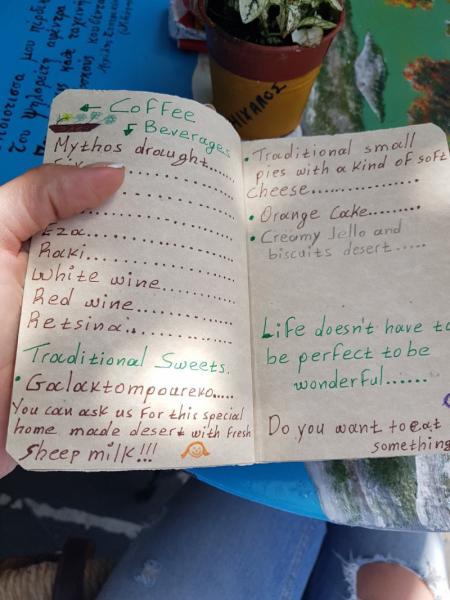 μου
Του
κάθε
ΜΙΧΑΛΟΣ
← Coffee
Beverages
Mythos draught......
Eza
Raki
White wine
Red wine
Retsina
Traditional Sweets.
• Galaktompoureko.....
You can ask us for this special
home made desert with fresh
sheep milk!!!
• Traditional small
pies with a kind of soft
cheese
• Orange Cake
• Creamy Jello and
biscuits desert .....
Life doesn't have to
be perfect to be
wonderful......
Do you want to eat
something